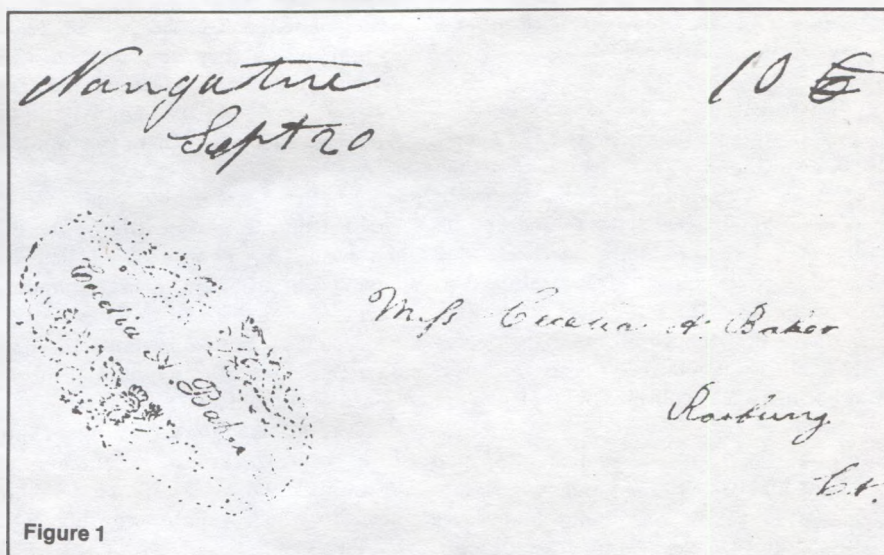 Naugatuc 10
Sept 20
Cecelia A. Baker
Miss Cecelia A. Baker
Roxbury
Ct.
Figure 1